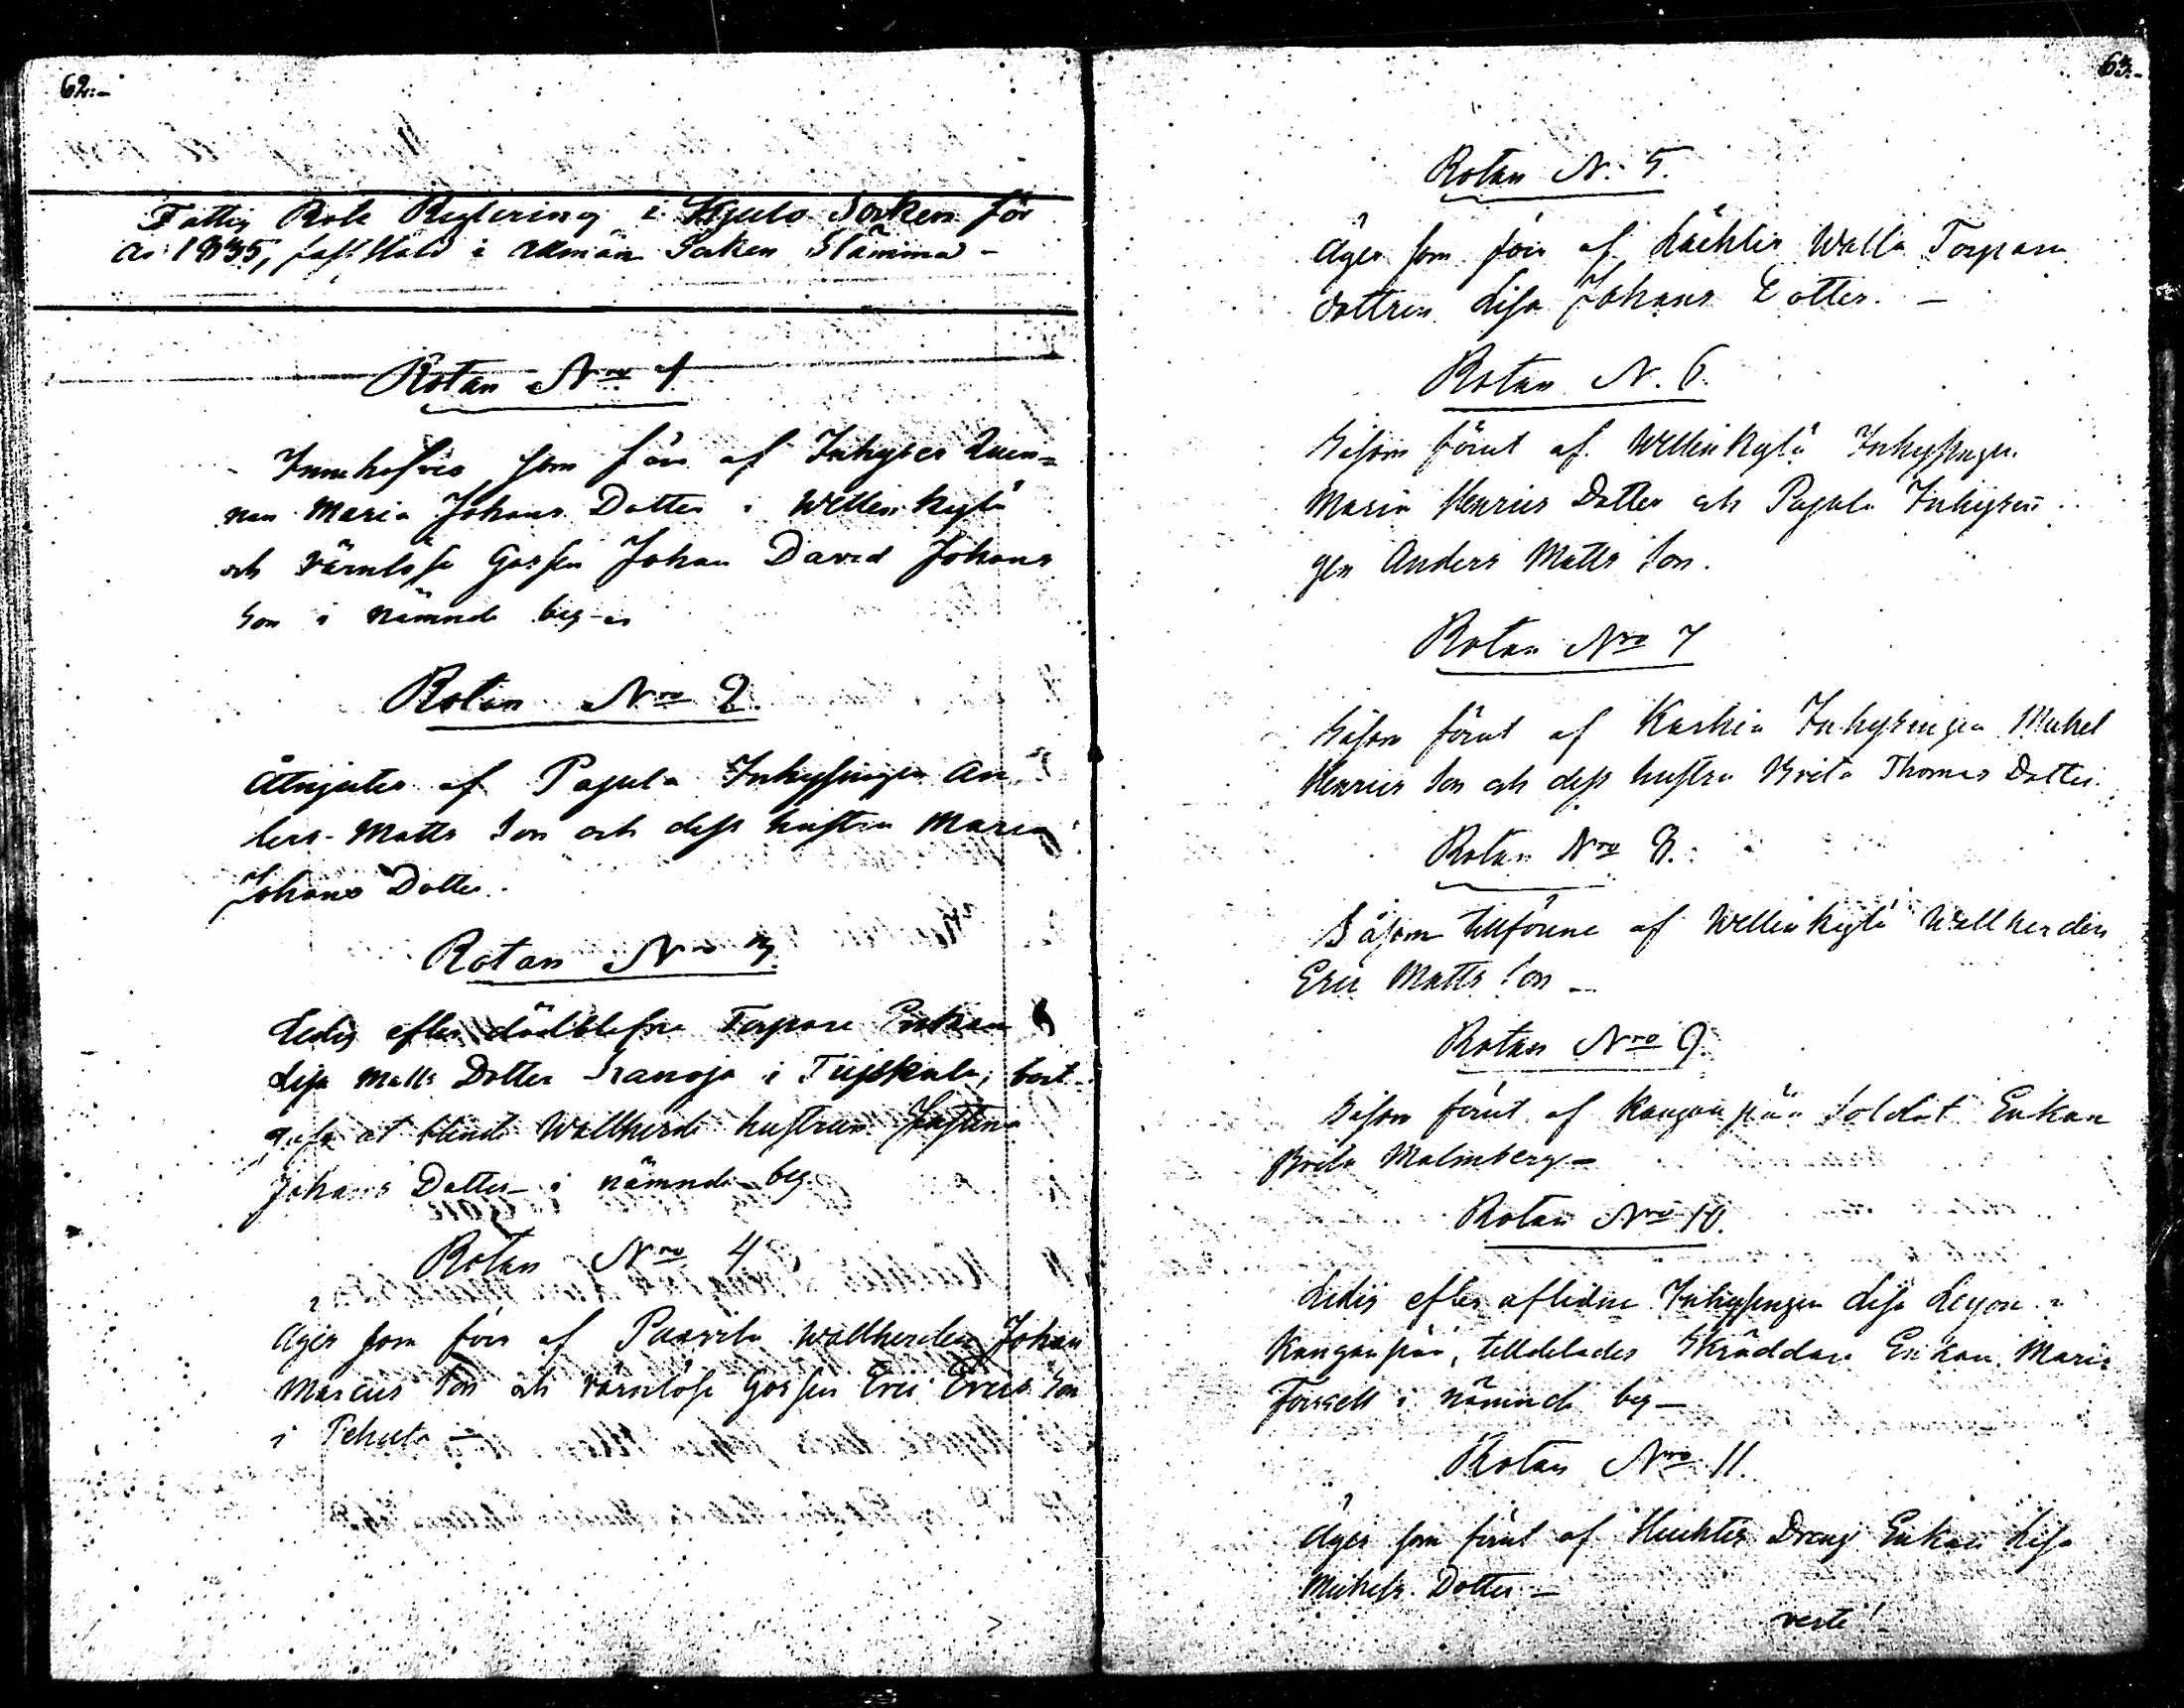 62.-
Fattig Rote Reglering i Kjulo Socken för
År 1835, faststäld i allmän Socken Stämma -
Rotan Nro 1
Innehafves som förr af Inhyses Quin=
nan Maria Johans Dotter i Wellinkylä
och värnlösa Gossen Johan David Johans
Son i nämnde by -
Rotan Nro 2.
Åtnjutes af Pajula Inhysingen An
ders Matts Son och dess hustru Maria
Johans Dotter.
Rotan Nro 3.
Ledig efter dödblefne Torpare Enkan
Lisa Matts Dotter i Tujskula, bort
gafs åt blinde Wallherde hustrun Justina
Johans Dotter i nämnde by.
Rotan Nro 4
Äges som förr af Paavila Wallherden Johan
Marcus Son och värnlösa Gossen Eric Erics Son
i Pehula -
63.-
Rotan N. 5.
Äges som förr af Lächlis Walla Torpare
dottren Lisa Johans Dotter. -
Rotan N. 6.
Såsom förut af Wellinkylä Inhysingen
Maria Henrics Dotter och Pajula Inhysin
gen Anders Matts Son.
Rotan Nro 7
Såsom förut af Karhia Inhysingen Michel
Henrics Son och dess hustru Brita Thomas Dotter.
Rotan Nro 8.
Såsom tillförene af Wellinkylä Wallherden
Eric Matts Son -
Rotan Nro 9.
Såsom förut af Kanganpää Soldat Enkan
Brita Malmberg -
Rotan Nro 10.
Ledig efter aflidne Inhysingen Lisa Leyon i
Kanganpää, tilldelades Skräddare Enkan Maria
Forssell i nämnde by -
Rotan Nro 11.
Äges som förut af Huchtis Dreng Enkan Lisa
Michels Dotter -
verte!